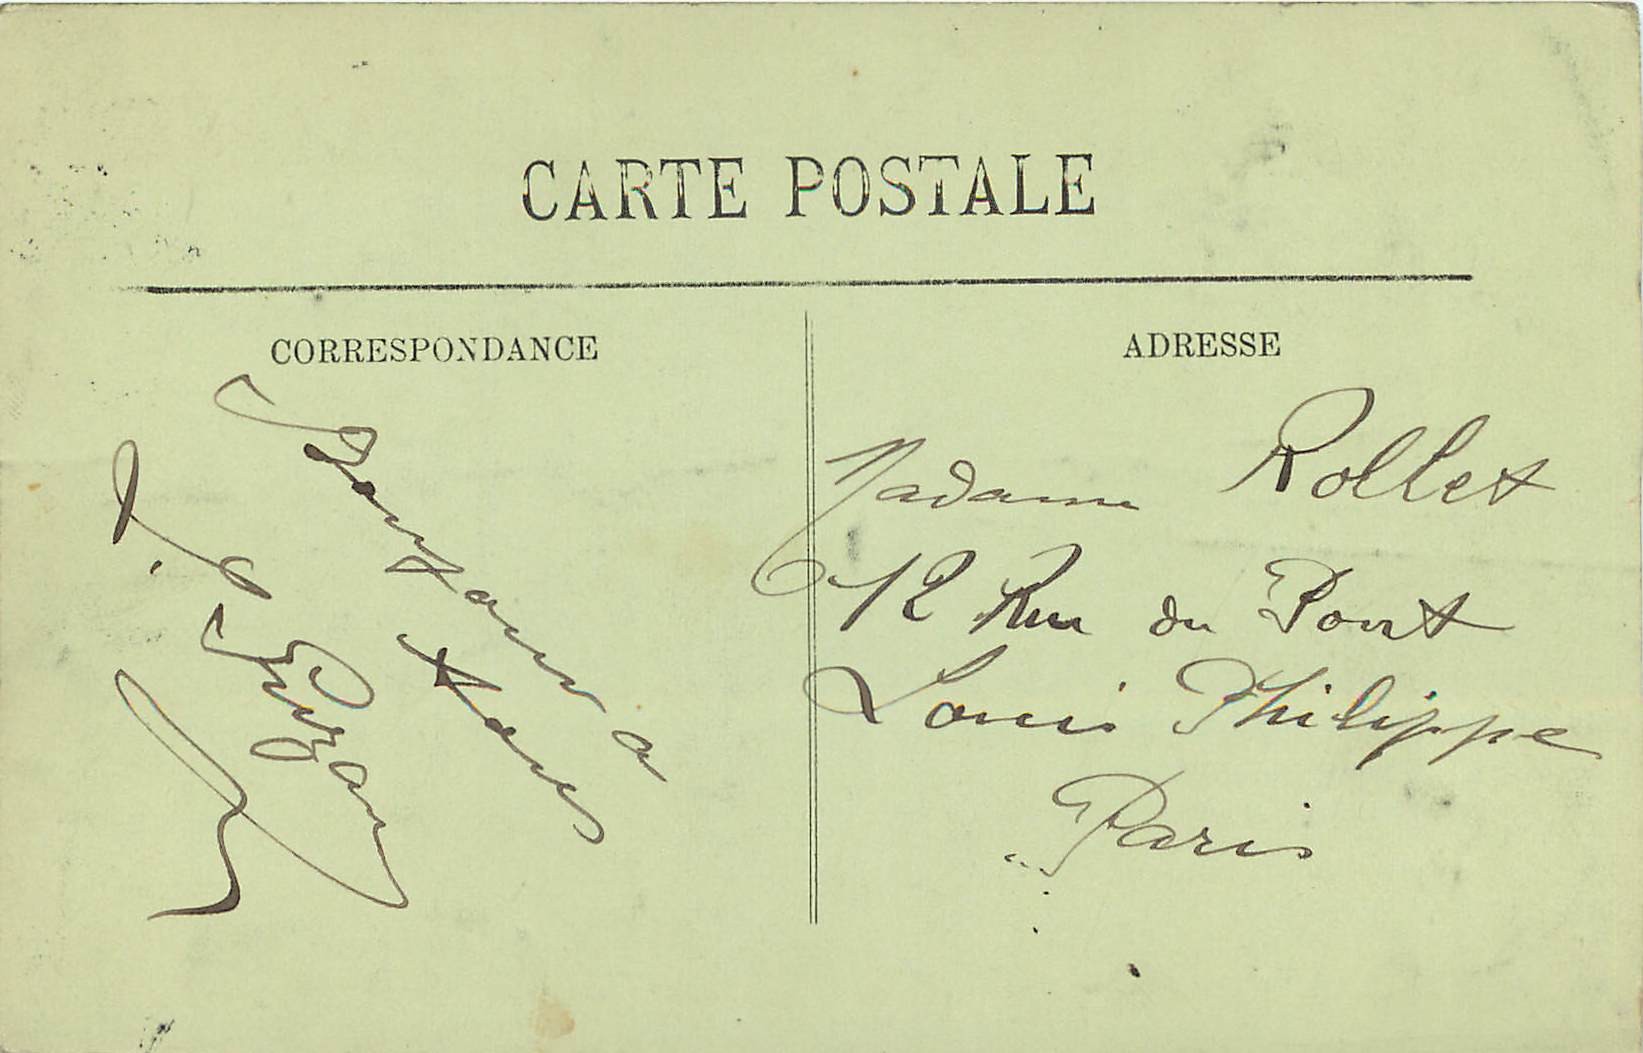 CARTE POSTALE
CORRESPONDANCE
Bonjour à
tous
ADRESSE
Madame Rollet
12 Rue du Pont
Louis Philippe
Paris